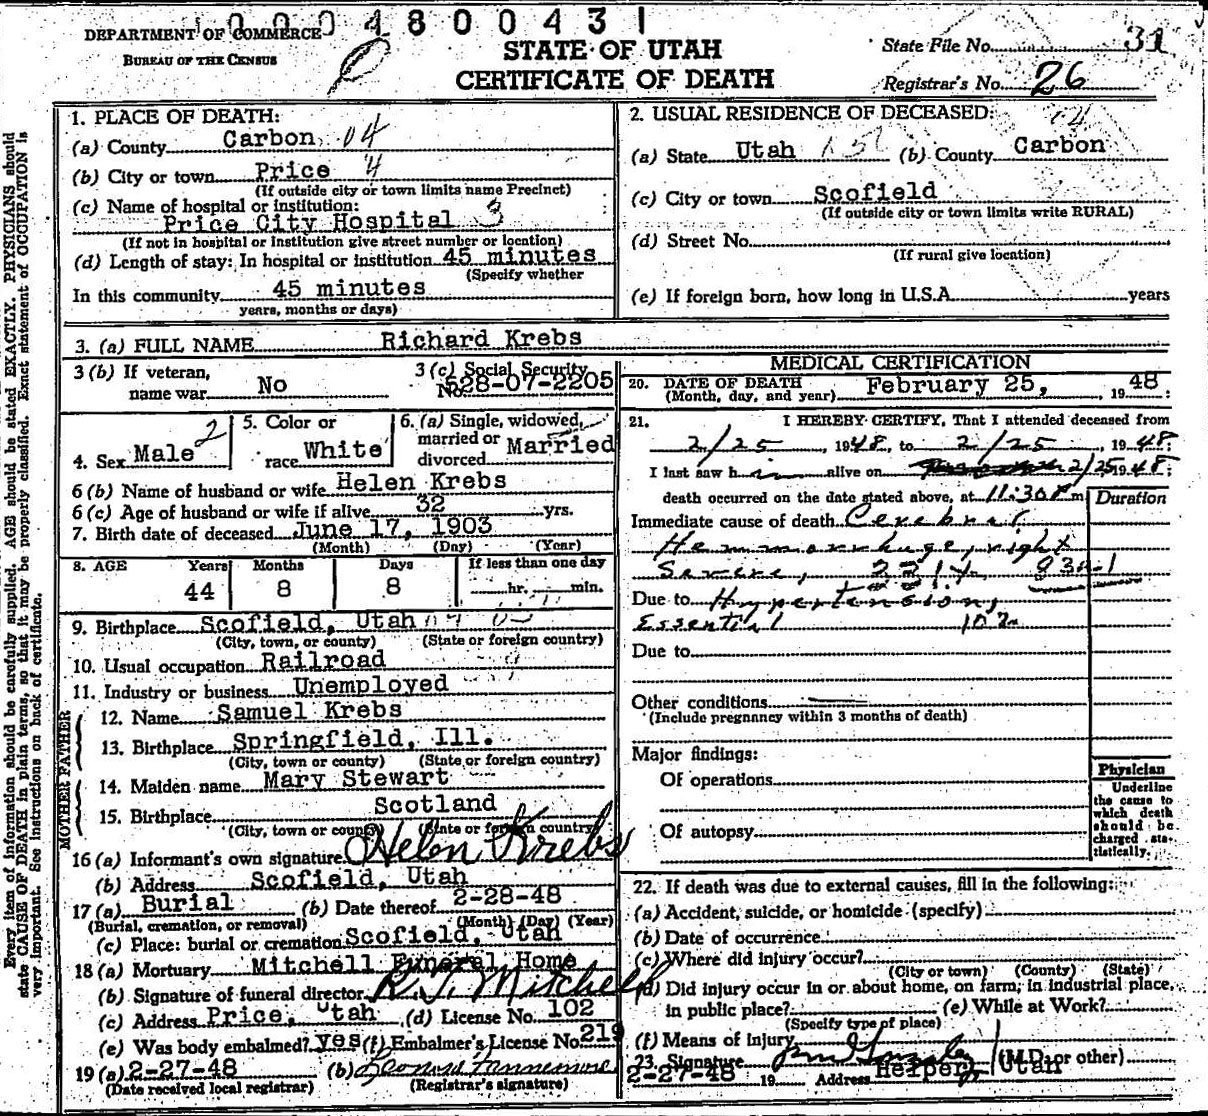 0004800431
DEPARTMENT OF COMMERCE
BUREAU OF THE CENSUS
STATE OF UTAH
CERTIFICATE OF DEATH
State File No. 31
Registrar's No. 26
Every item of information should be carefully supplied. AGE should be stated EXACTLY. PHYSICIANS should
state CAUSE OF DEATH in plain terms, so that it may be properly classified. Exact statement of OCCUPATION is
very important. See instructions on back of certificate.
1. PLACE OF DEATH:
(a) County Carbon 04
(b) City or town Price 4
(If outside city or town limits name Precinct)
(c) Name of hospital or institution:
Price City Hospital 3
(If not in hospital or institution give street number or location)
(d) Length of stay: In hospital or institution 45 minutes
(Specify whether
In this community 45 minutes
years, months or days)
2. USUAL RESIDENCE OF DECEASED:
(a) State Utah (b) County Carbon
(c) City or town Scofield
(If outside city or town limits write RURAL)
(d) Street No.
(If rural give location)
(e) If foreign born, how long in U.S.A. years
3. (a) FULL NAME Richard Krebs
3 (b) If veteran, name war No
3 (c) Social Security No. 528-07-2205
4. Sex Male 2
5. Color or race White
6. (a) Single, widowed, married or divorced Married
6 (b) Name of husband or wife Helen Krebs
6 (c) Age of husband or wife if alive 32 yrs.
7. Birth date of deceased June 17, 1903
(Month) (Day) (Year)
8. AGE Years Months Days If less than one day
44 8 8 hr. min.
9. Birthplace Scofield, Utah
(City, town, or county) (State or foreign country)
10. Usual occupation Railroad
11. Industry or business Unemployed
MOTHER FATHER
12. Name Samuel Krebs
13. Birthplace Springfield, Ill.
(City, town or county) (State or foreign country)
14. Maiden name Mary Stewart
15. Birthplace Scotland
(City, town or county) (State or foreign country)
16 (a) Informant's own signature Helen Krebs
(b) Address Scofield, Utah
17 (a) Burial (b) Date thereof 2-28-48
(Burial, cremation, or removal) (Month) (Day) (Year)
(c) Place: burial or cremation Scofield, Utah
18 (a) Mortuary Mitchell Funeral Home
(b) Signature of funeral director R. J. Mitchell
(c) Address Price, Utah (d) License No. 102
(e) Was body embalmed? yes (f) Embalmer's License No. 219
19 (a) 2-27-48 (b)
(Date received local registrar) (Registrar's signature)
MEDICAL CERTIFICATION
20. DATE OF DEATH February 25, 1948
(Month, day, and year)
21. I HEREBY CERTIFY, That I attended deceased from
2/25, 1948, to 2/25, 1948;
I last saw him alive on 2/25 1948;
death occurred on the date stated above, at 11:30 P m
Duration
Immediate cause of death Cerebral
Hemmorrhage, right
Severe,
Due to Hypertension,
Essential 102
Due to
Other conditions
(Include pregnancy within 3 months of death)
Major findings:
Of operations
Of autopsy
Physician
Underline
the cause to
which death
should be
charged sta-
tistically.
22. If death was due to external causes, fill in the following:
(a) Accident, suicide, or homicide (specify)
(b) Date of occurrence
(c) Where did injury occur?
(City or town) (County) (State)
(d) Did injury occur in or about home, on farm, in industrial place,
in public place? (e) While at Work?
(Specify type of place)
(f) Means of injury
23. Signature (M.D. or other)
2-27-48 19 Address Helper, Utah